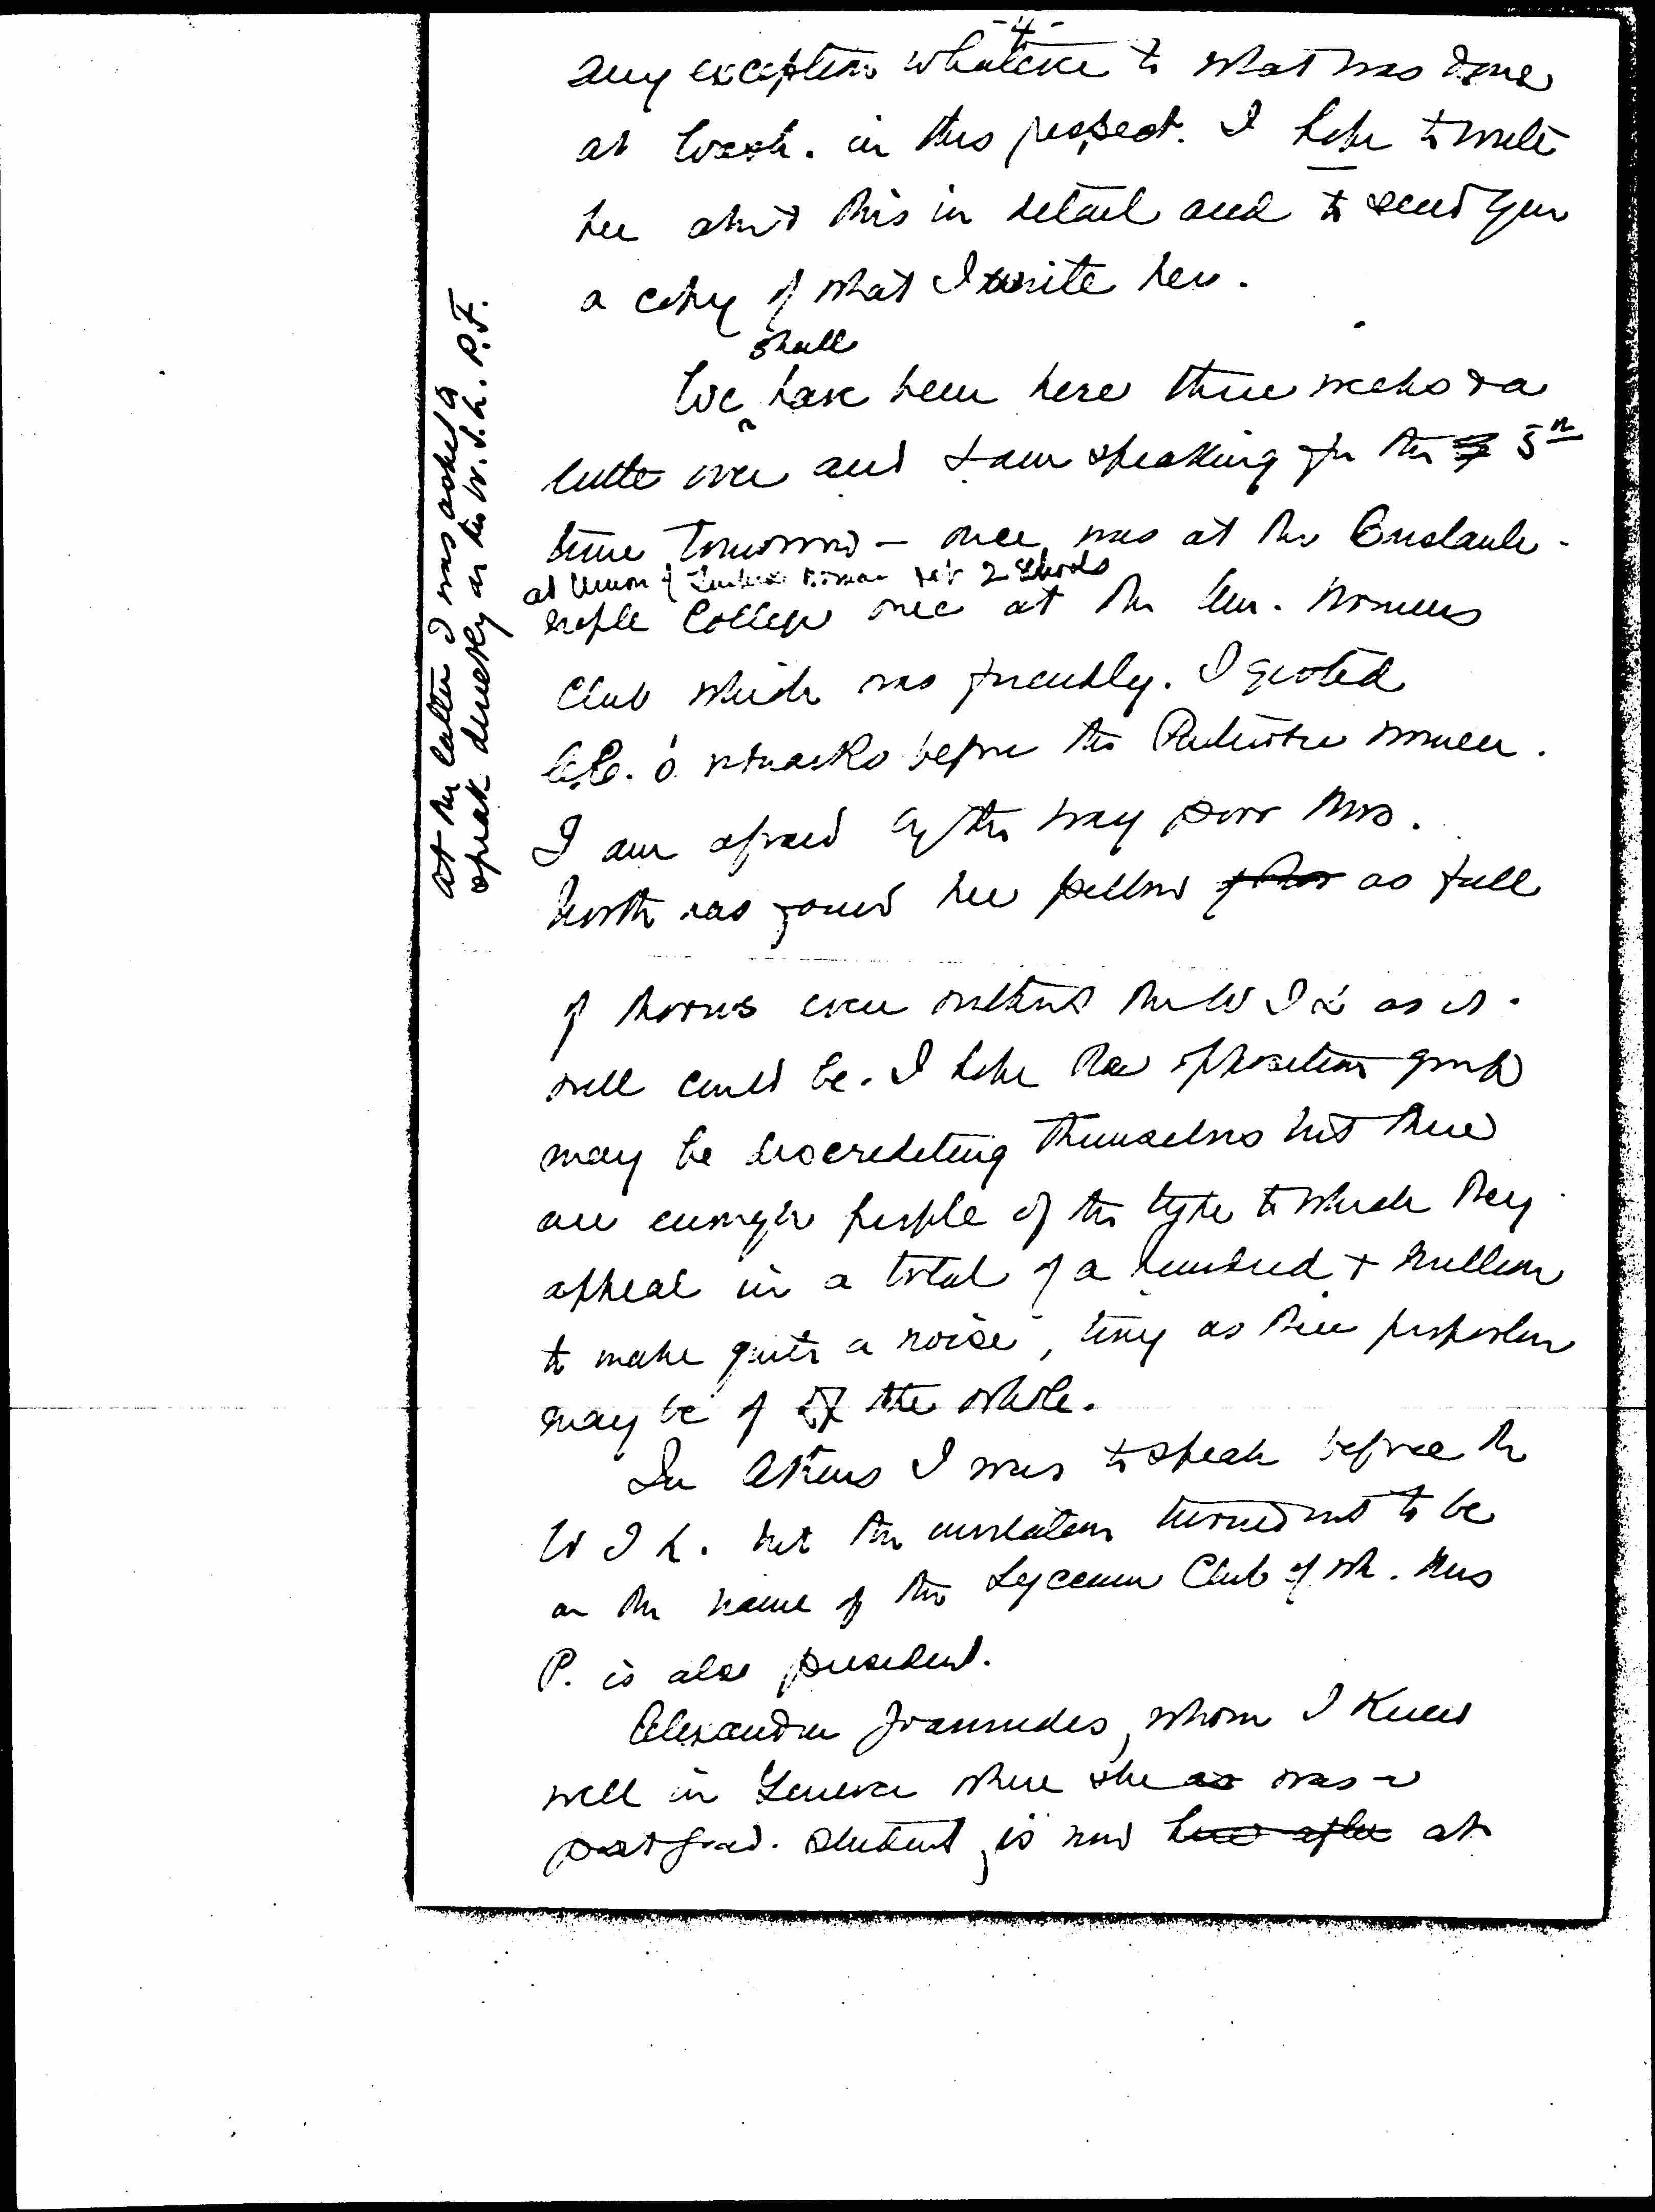 -4-
any exception whatever to what was done
at Wash. in this respect. I hope to write
her abt this in detail and to send you
a copy of what I write her.
shall
We have been here three weeks & a
little over and I am speaking for the 5th
time tomorrow — once was at the Constanti-
at Union of Turkish Women & at 2 Schools
nople College once at the Am. Womens
Club which was friendly. I quoted
C.C.'s remarks before the Patriotic women.
I am afraid by the way poor Mrs.
North has found her pillow as full
of thorns even without the W I L as it
well could be. I hope the opposition group
may be discrediting themselves but there
are enough people of the type to which they
appeal in a total of a hundred + million
to make quite a noise, tiny as their proportion
may be of the whole.
In Athens I was to speak before the
W I L. but the invitation turned out to be
in the name of the Lyceum Club of wh. Mrs
P. is also president.
Alexandra Joannides, whom I knew
well in Geneva where she was a
post grad. student, is now at
at the latter I was asked to
speak directly on the W.I.L. P.F.